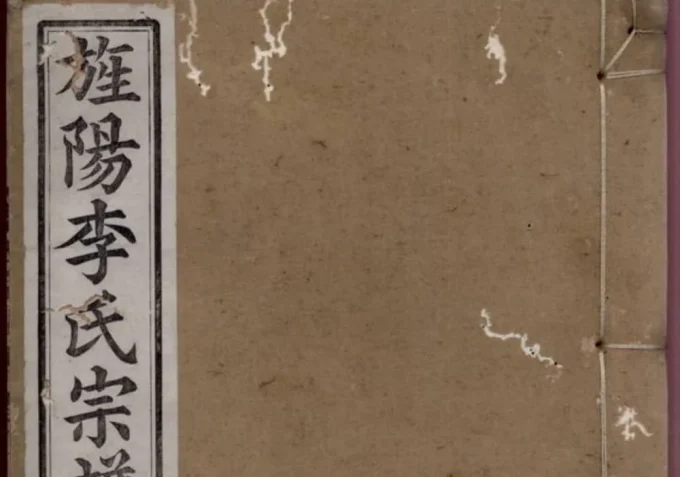 旌陽李氏宗